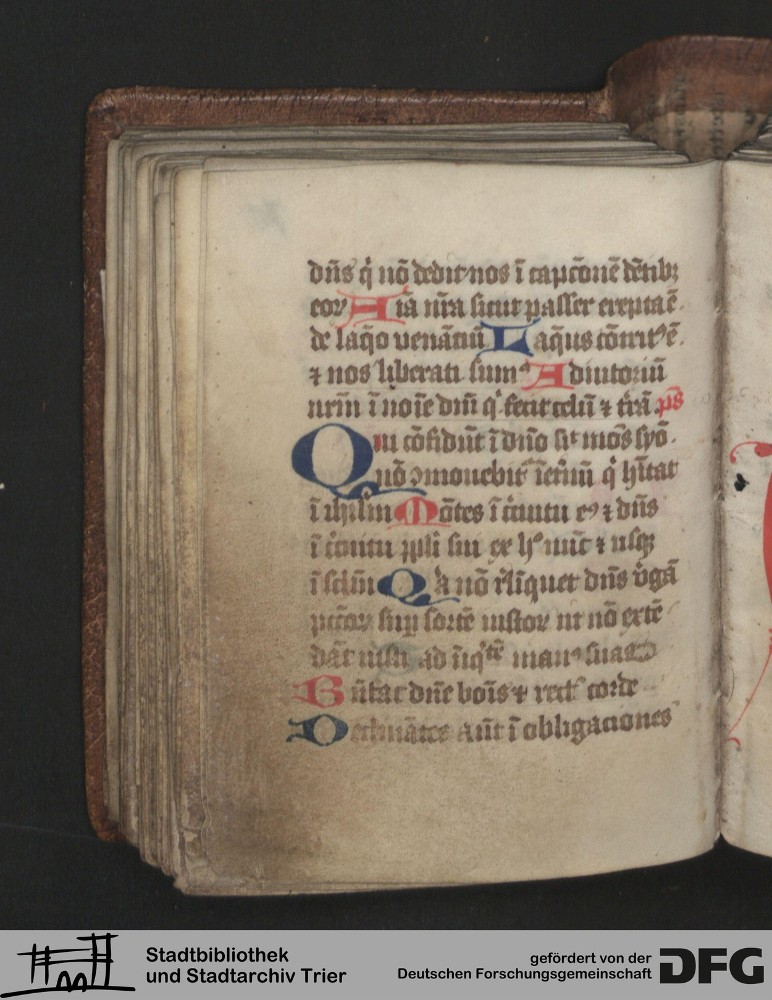 dn̄s q̄ nō dedit nos ī capcōnē dētibꝫ
eoꝝ Aīa nr̄a sicut passer erepta ē.
de laq̄o venātiū Laq̄us cōtrit9 ē.
⁊ nos liberati sum9 Adiutoriū
nrm̄ ī noīe dm̄ī q̄ fecit celū ⁊ trā. ps̄
Qui cōfidūt ī dn̄o sīt mōs syō.
nō ꝯmouebit' īetn̄ū q̄ hītat
ī ihrlm̄ Mōtes ī cūitu e9 ⁊ dn̄s
ī cūitu ppli sui ex h° nūc ⁊ usqꝫ
ī sclm̄ Qa nō r̄liquet dn̄s v̄gā
pctōꝝ sup sortē iustoꝝ ut nō extē
dāt iusti ad īiqtē man9 suas
Bn̄fac dn̄e boīs ⁊ rect' corde
Declinātes aūt ī obligaciones
Stadtbibliothek
und Stadtarchiv Trier
gefördert von der
Deutschen Forschungsgemeinschaft DFG